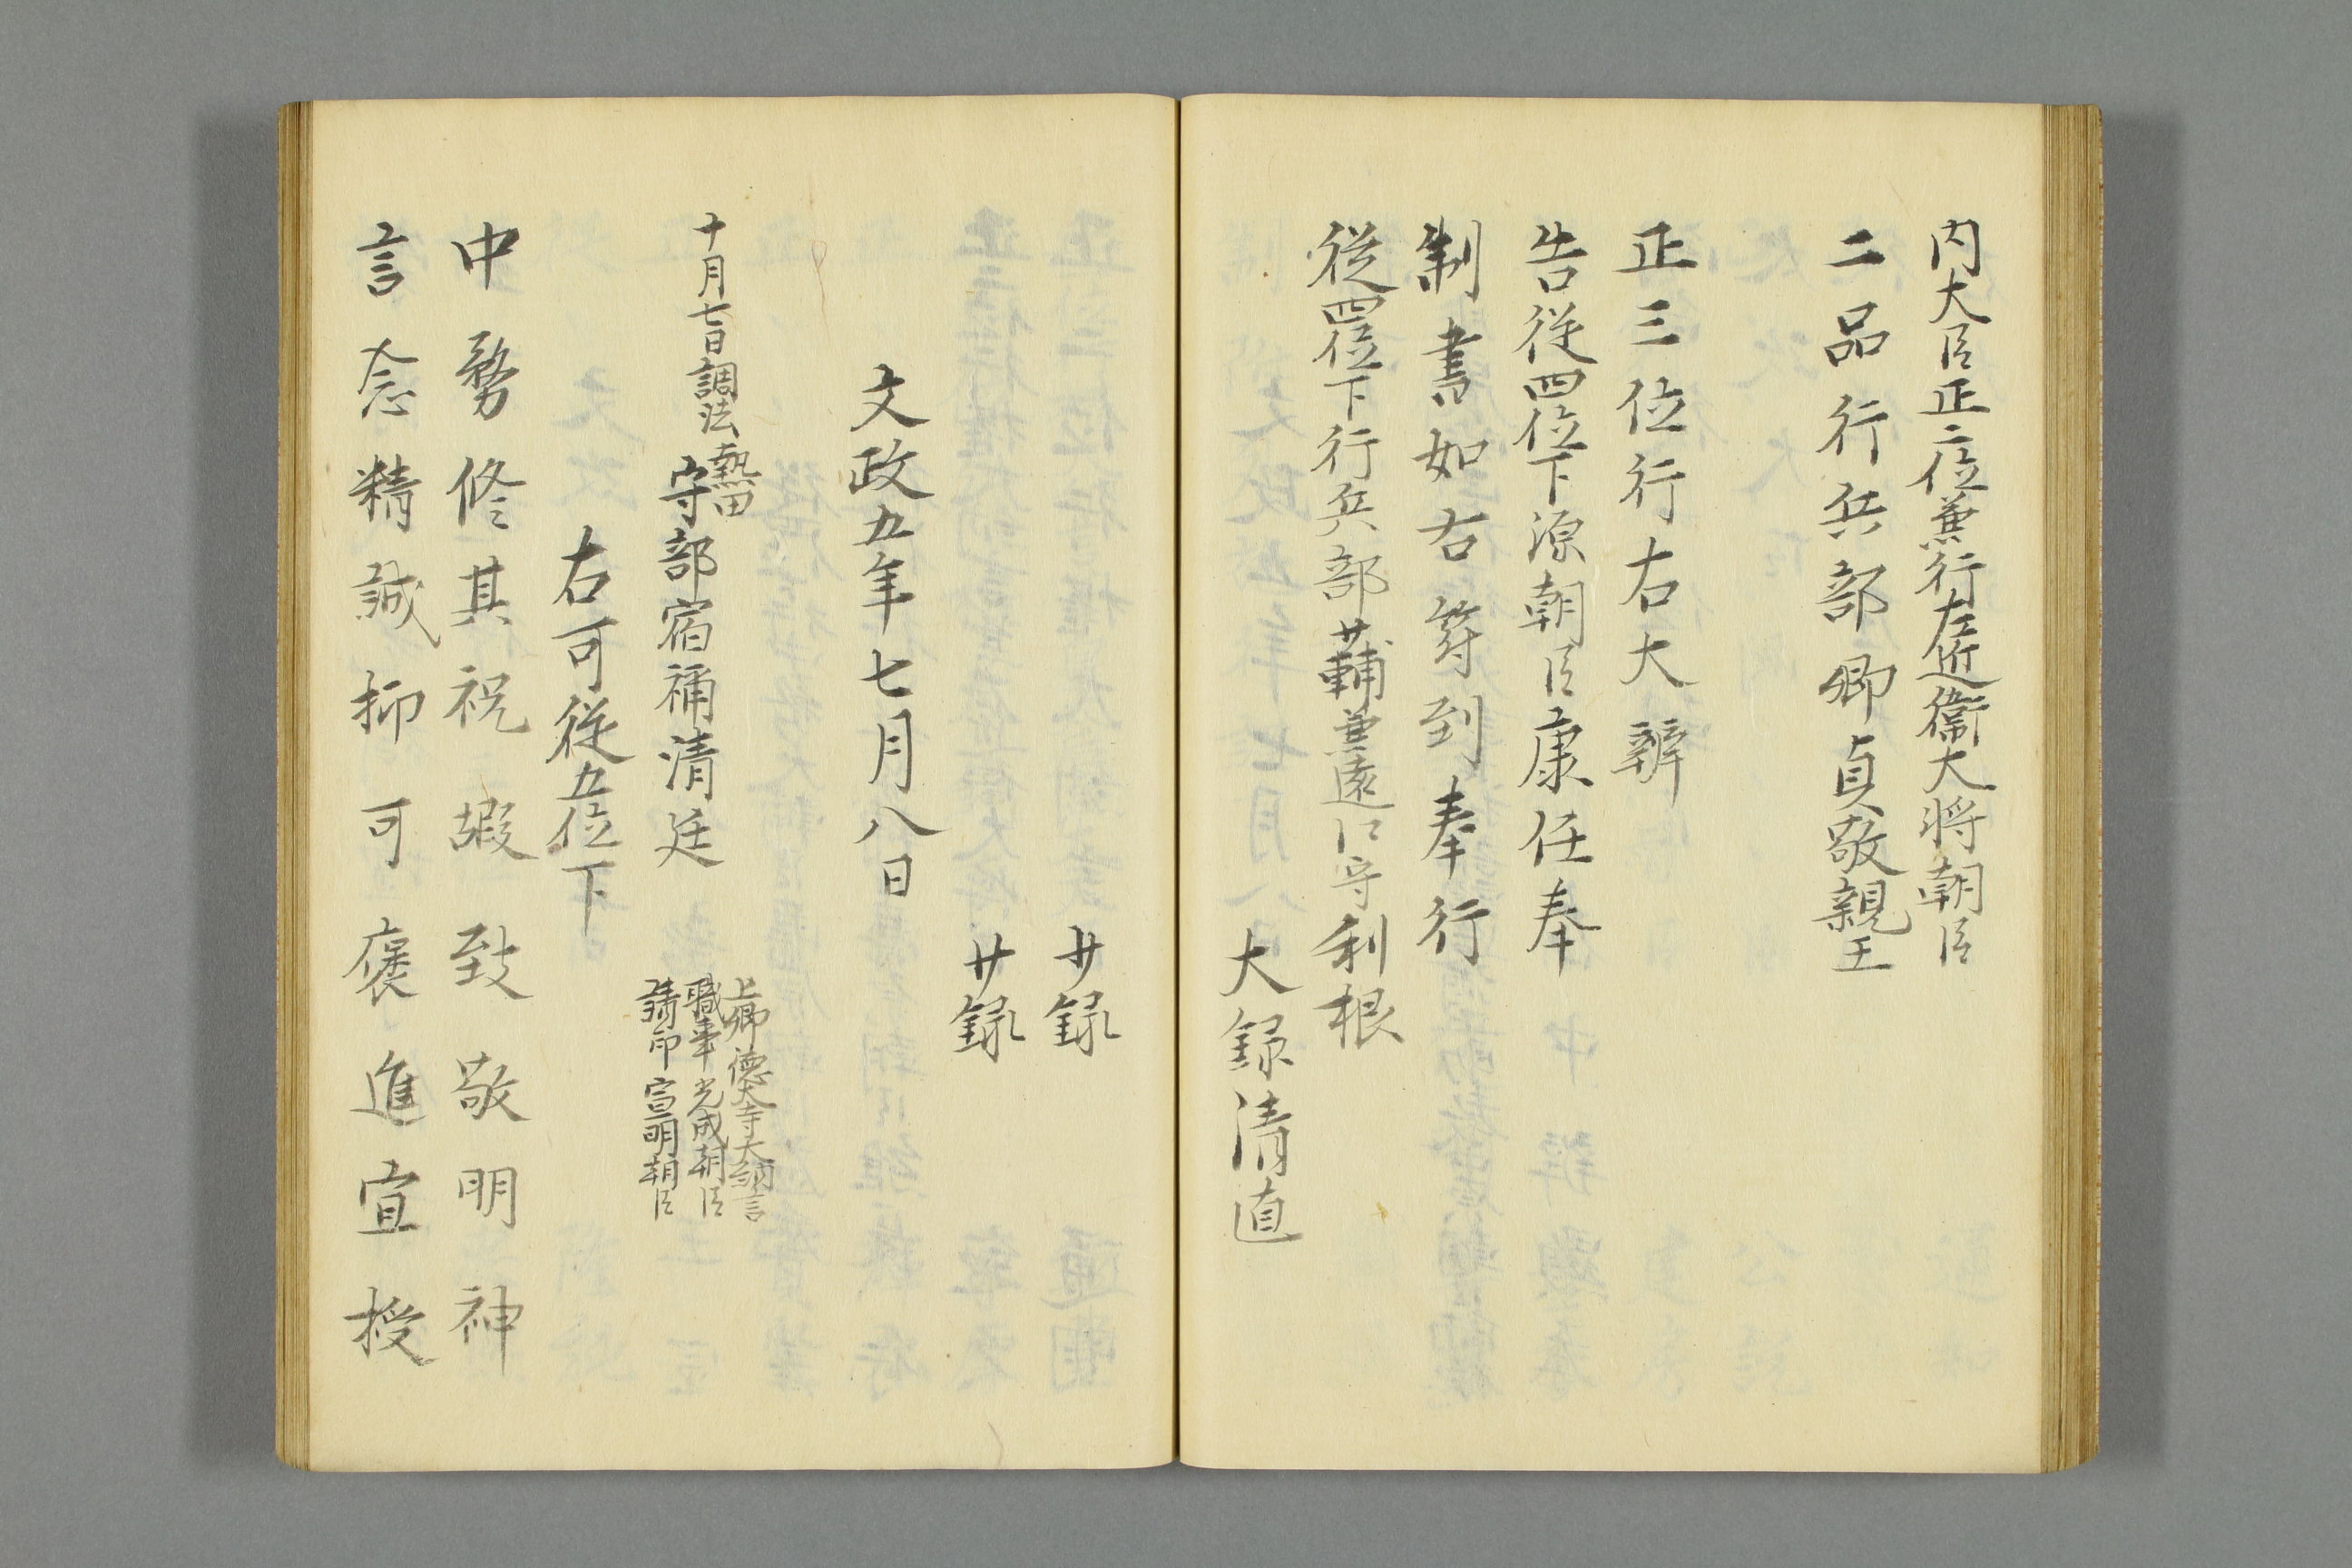 内大臣正二位兼行左近衛大将朝臣
二品行兵部卿貞敬親王
正三位行右大辨
告従四位下源朝臣康任奉
制書如右符到奉行
従四位下行兵部少輔兼遠江守利根
大録清直
少録
少録
文政五年七月八日
十月七日調法
熱田
守部宿祢清廷
上卿德大寺大納言
職事光成朝臣
請印宣明朝臣
右可従五位下
中務修其祝嘏致敬明神
言念精誠抑可褒進宣授